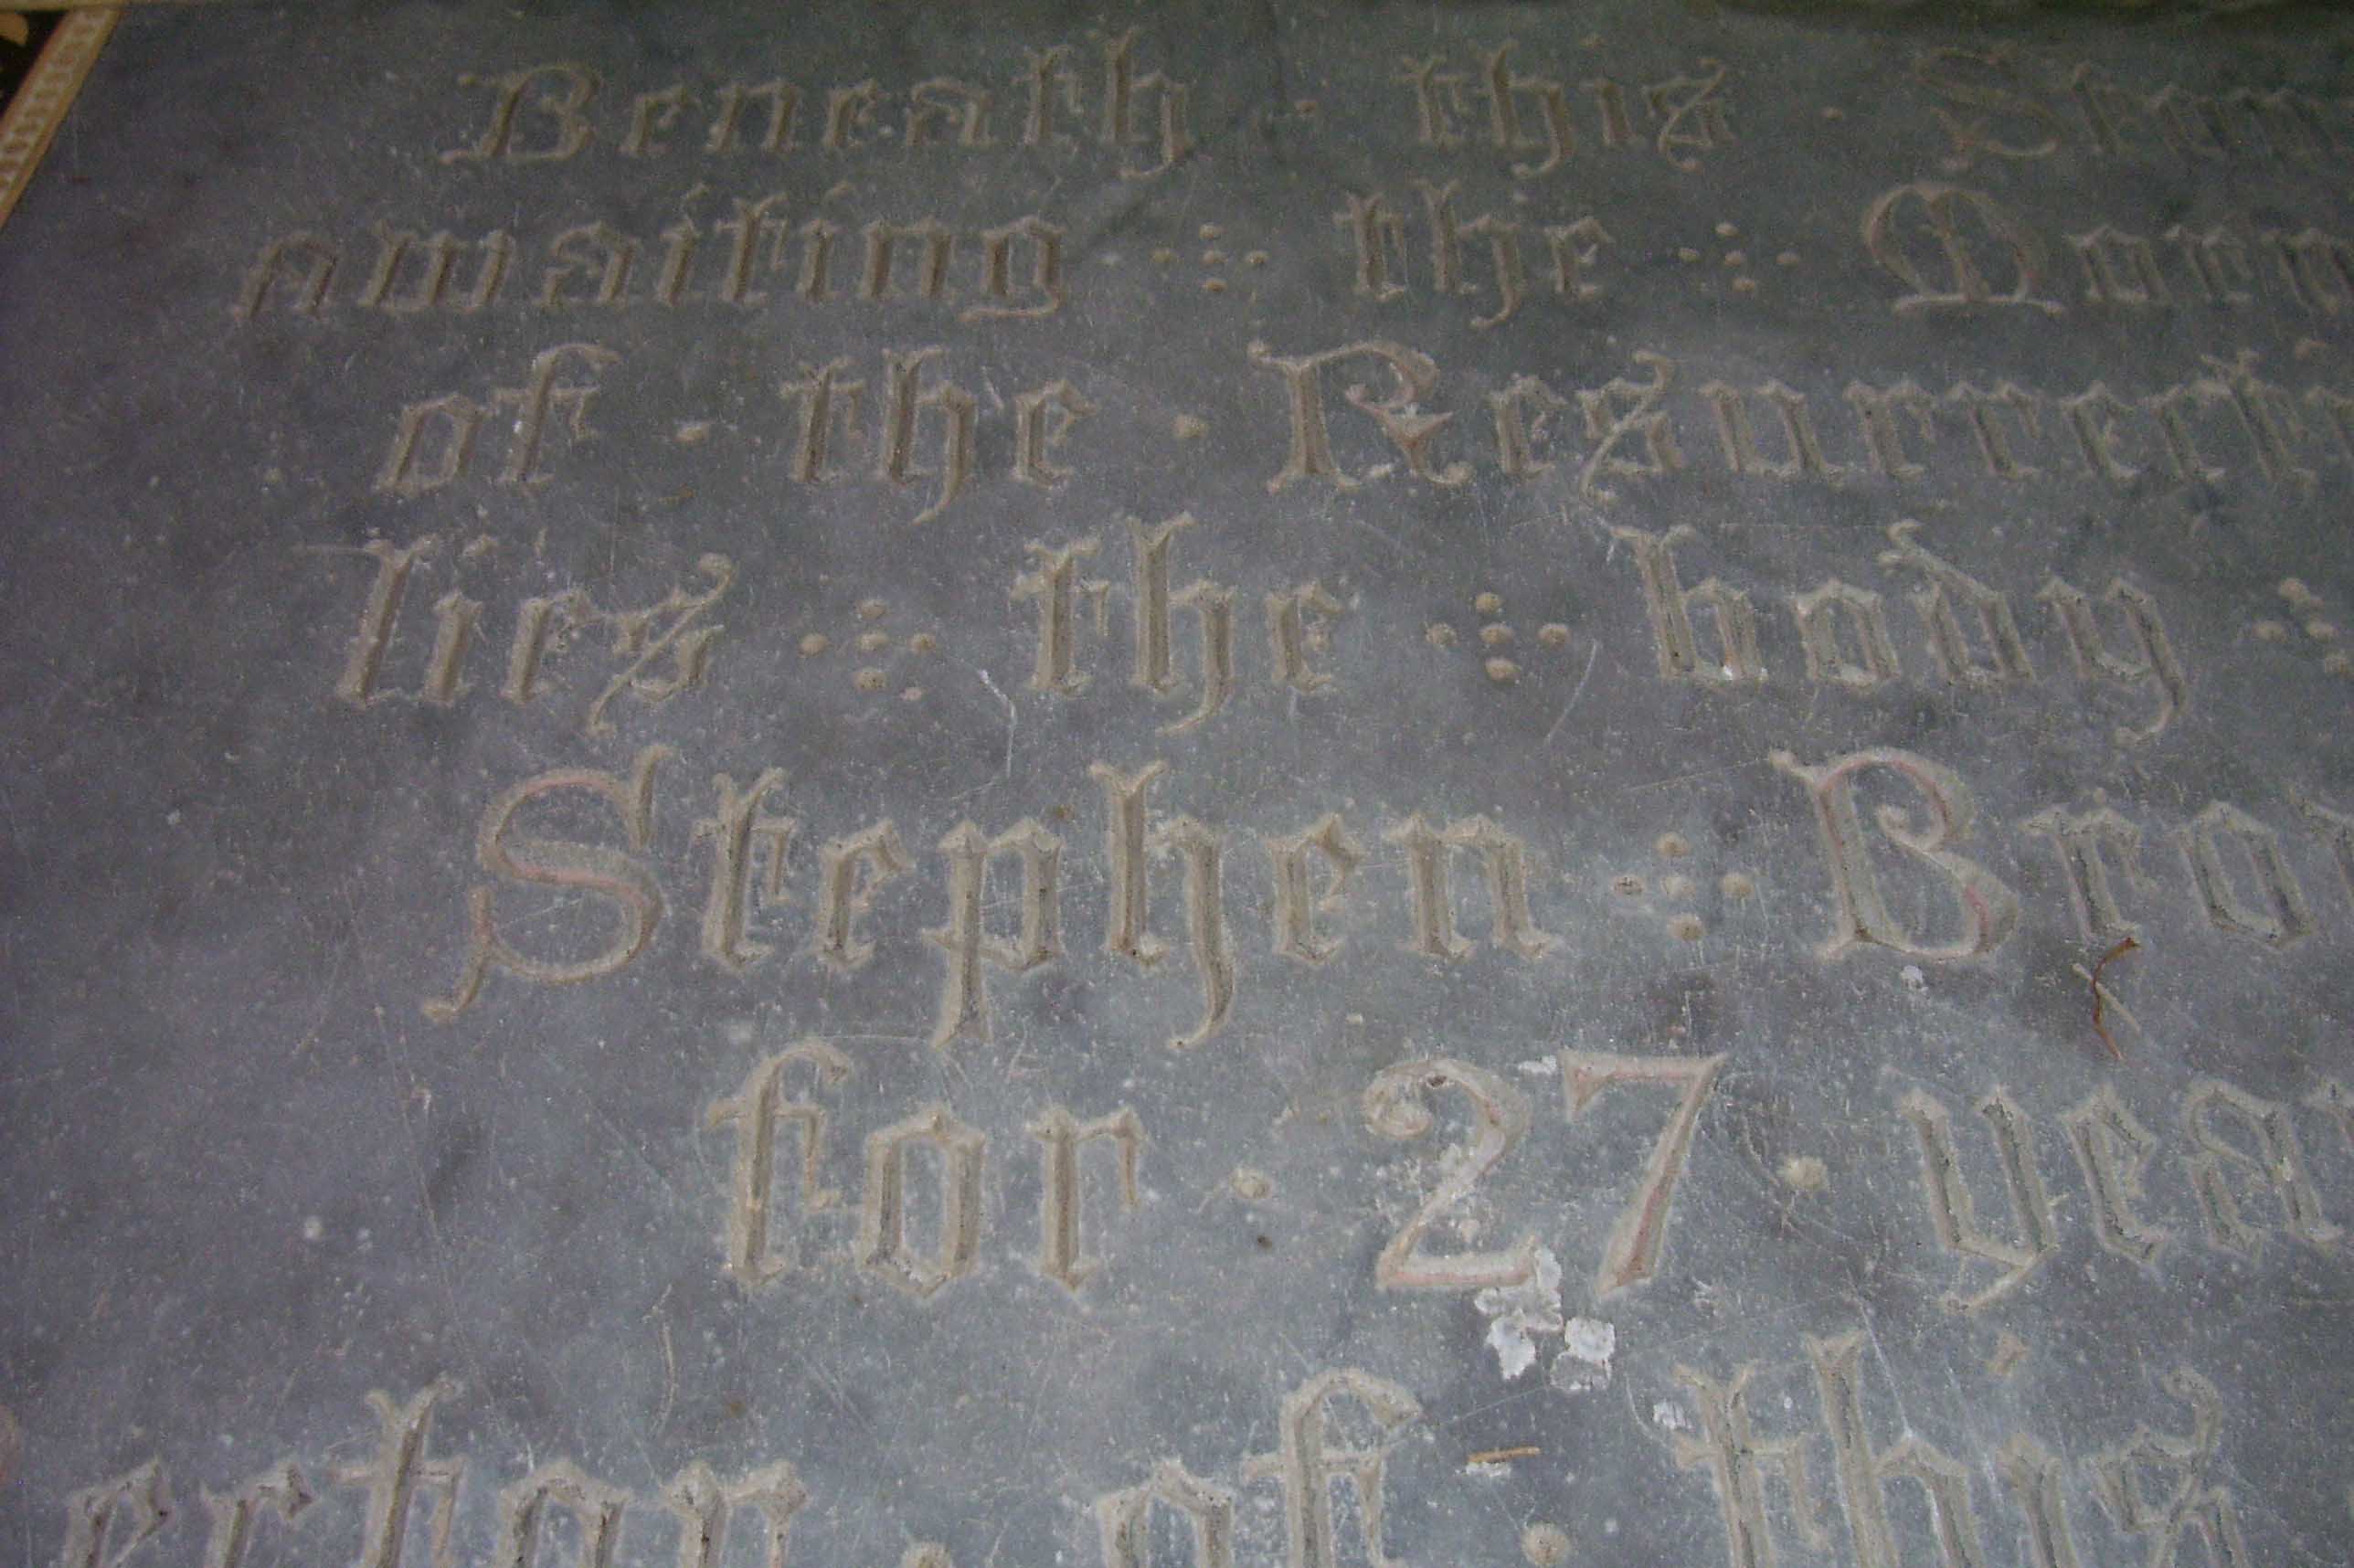 Beneath · this · Ston
awaiting the Morn
of · the · Resurrecti
lies the body
Stephen Bro
for · 27 · year
ector · of · this